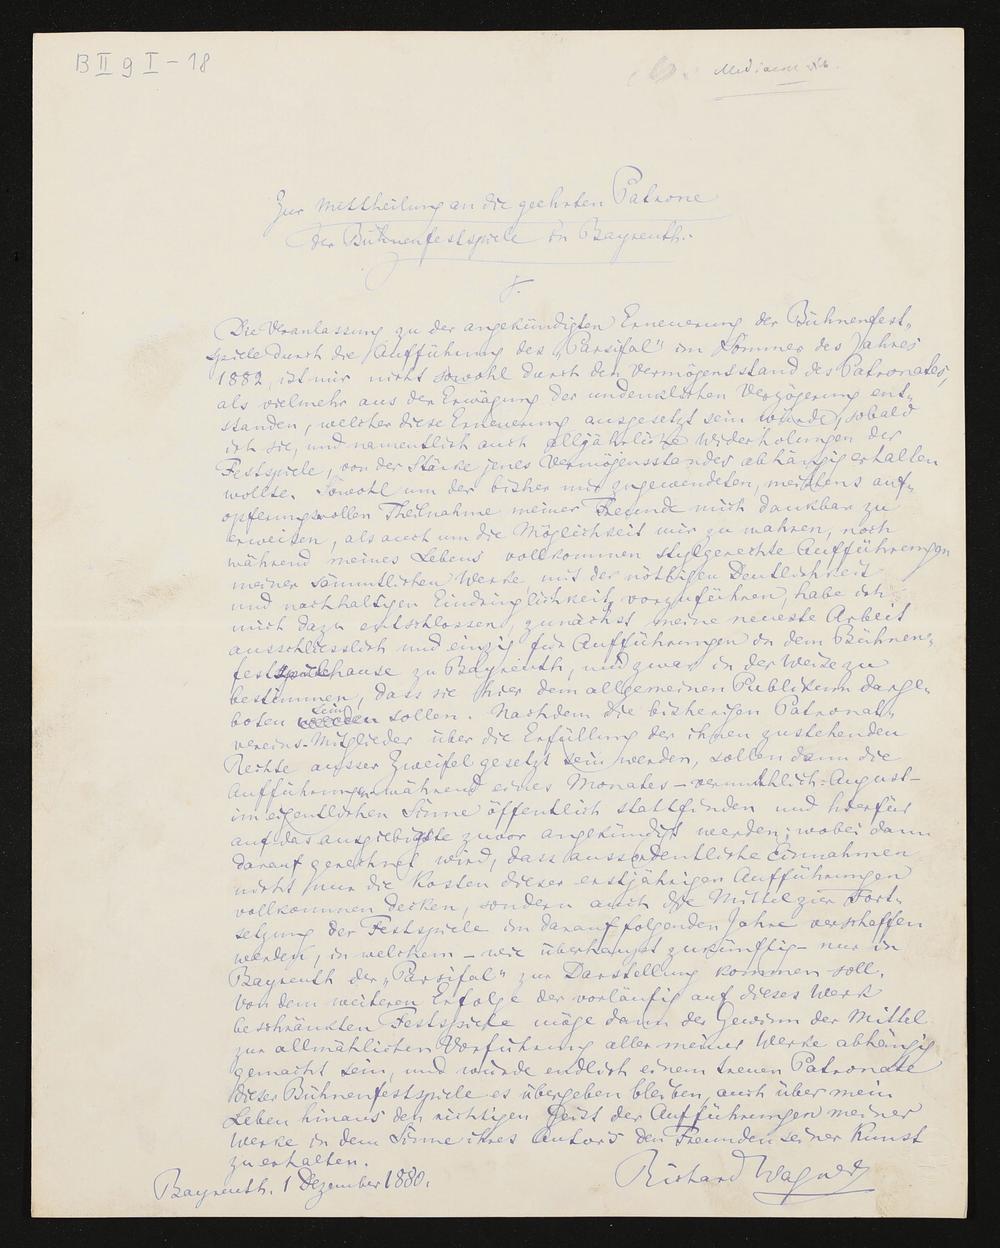 B II g I - 18
Zur Mittheilung an die geehrten Patrone
der Bühnenfestspiele in Bayreuth.
Die Veranlassung zu der angekündigten Erneuerung der Bühnenfest-
spiele durch die Aufführung des „Parsifal" im Sommer des Jahres
1882, ist mir nicht sowohl durch den Vermögensstand des Patronates,
als vielmehr aus der Erwägung der undenklichen Verzögerung ent-
standen, welcher diese Erneuerung ausgesetzt sein würde, sobald
ich sie, und namentlich auch alljährliche Widerholungen der
Festspiele, von der Stärke jenes Vermögensstandes abhängig erhalten
wollte. Sowohl um der bisher mir zugewendeten, meistens auf-
opferungsvollen Theilnahme meiner Freunde mich dankbar zu
erweisen, als auch um die Möglichkeit mir zu wahren, noch
während meines Lebens vollkommen stylgerechte Aufführungen
meiner sämmtlichen Werke mit der nöthigen Deutlichkeit
und nachhaltigen Eindringlichkeit vorzuführen, habe ich
mich dazu entschlossen, zunächst meine neueste Arbeit
ausschliesslich und einzig für Aufführungen in dem Bühnen-
festspielhause zu Bayreuth, und zwar in der Weise zu
bestimmen, dass sie hier dem allgemeinen Publikum darge-
boten sein sollen. Nachdem die bisherigen Patronat-
vereins-Mitglieder über die Erfüllung der ihnen zustehenden
Rechte ausser Zweifel gesetzt sein werden, sollen dann die
Aufführungen während eines Monates – vermuthlich: August –
im eigentlichen Sinne öffentlich stattfinden und hierfür
auf das ausgiebigste zuvor angekündigt werden; wobei dann
darauf gerechnet wird, dass ausserordentliche Einnahmen
nicht nur die Kosten dieser erstjährigen Aufführungen
vollkommen decken, sondern auch die Mittel zur Fort-
setzung der Festspiele im darauf folgenden Jahre verschaffen
werden, in welchem – wie überhaupt zukünftig – nur in
Bayreuth der „Parsifal" zur Darstellung kommen soll.
Von dem weiteren Erfolge der vorläufig auf dieses Werk
beschränkten Festspiele möge dann der Gewinn der Mittel
zur allmählichen Vorführung aller meiner Werke abhängig
gemacht sein, und würde endlich einem treuen Patronate
dieser Bühnenfestspiele es übergeben bleiben, auch über mein
Leben hinaus den richtigen Geist der Aufführungen meiner
Werke in dem Sinne ihres Autors den Freunden seiner Kunst
zu erhalten.
Bayreuth. 1 Dezember 1880.
Richard Wagner